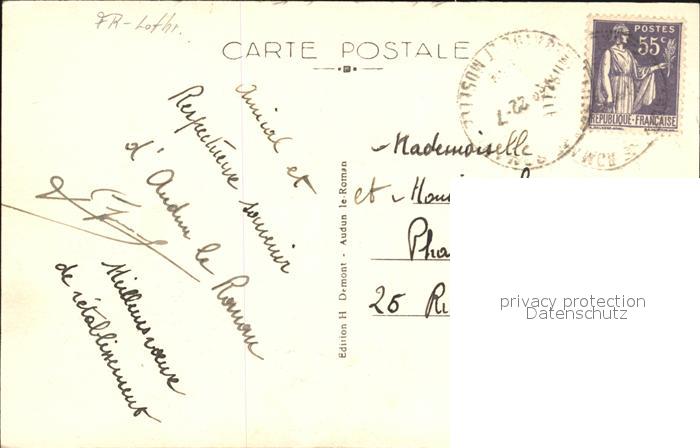 FR-Lothr.
CARTE POSTALE
POSTES
55c
REPUBLIQUE-FRANÇAISE
22-7
Amical et
Respectueux souvenir
d'Audun le Roman
Meilleurs vœux
de rétablissement
Edition H Demont - Audun-le-Roman
Mademoiselle
et
25
privacy protection
Datenschutz